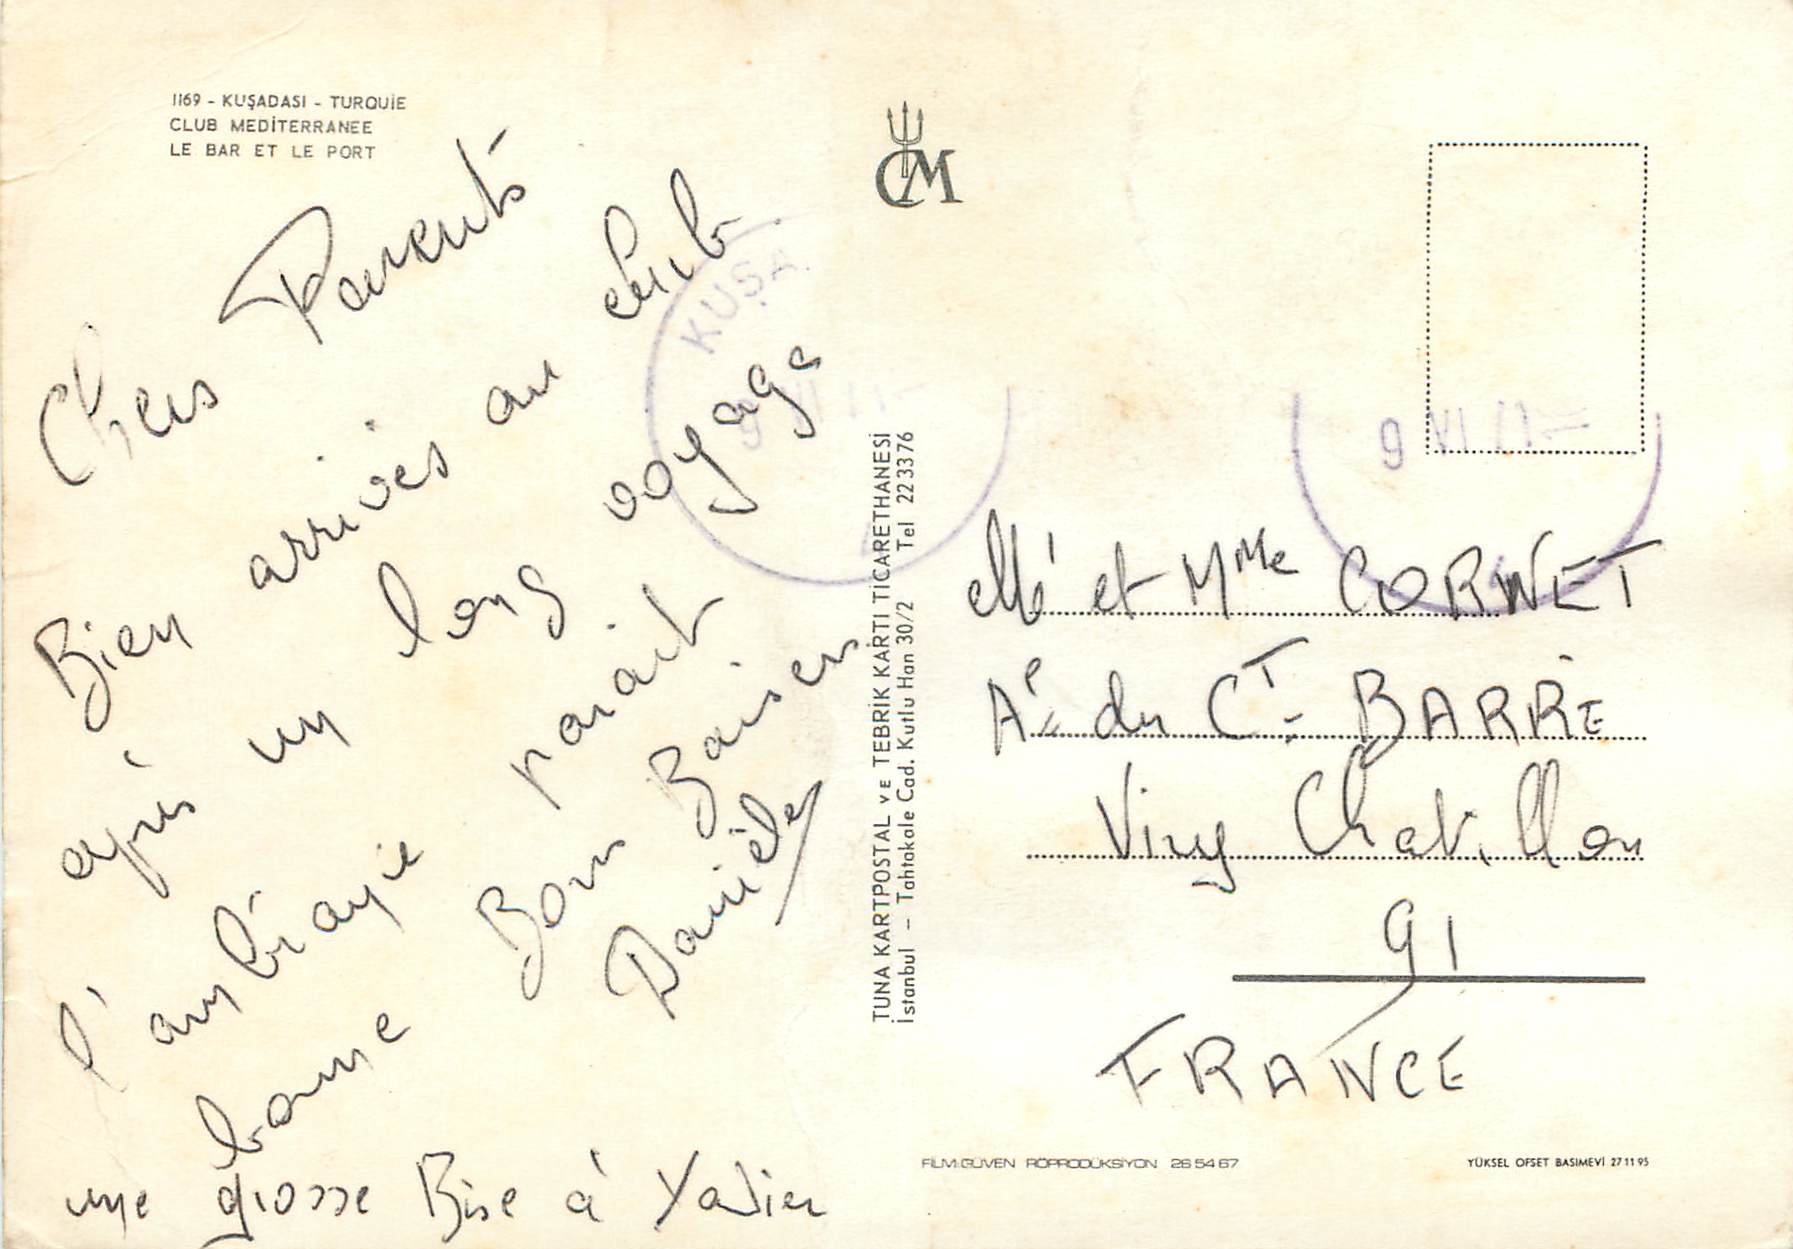 1169 - KUŞADASI - TURQUİE
CLUB MEDİTERRANEE
LE BAR ET LE PORT
Chers Parents
Bien arrivés au club
après un long voyage
l'ambiance parait
bonne Bons Baisers
Danièle
une grosse Bise à Xavier
CM
KUŞA.
9 VI
TUNA KARTPOSTAL VE TEBRİK KARTI TİCARETHANESİ
İstanbul – Tahtakale Cad. Kutlu Han 30/2 Tel 223376
9 VI
Mr et Mme CORNET
Ae du CT BARRÉ
Viry Chatillon
91
FRANCE
FİLM:GÜVEN RÖPRODÜKSİYON 26 54 67
YÜKSEL OFSET BASIMEVİ 27 11 95